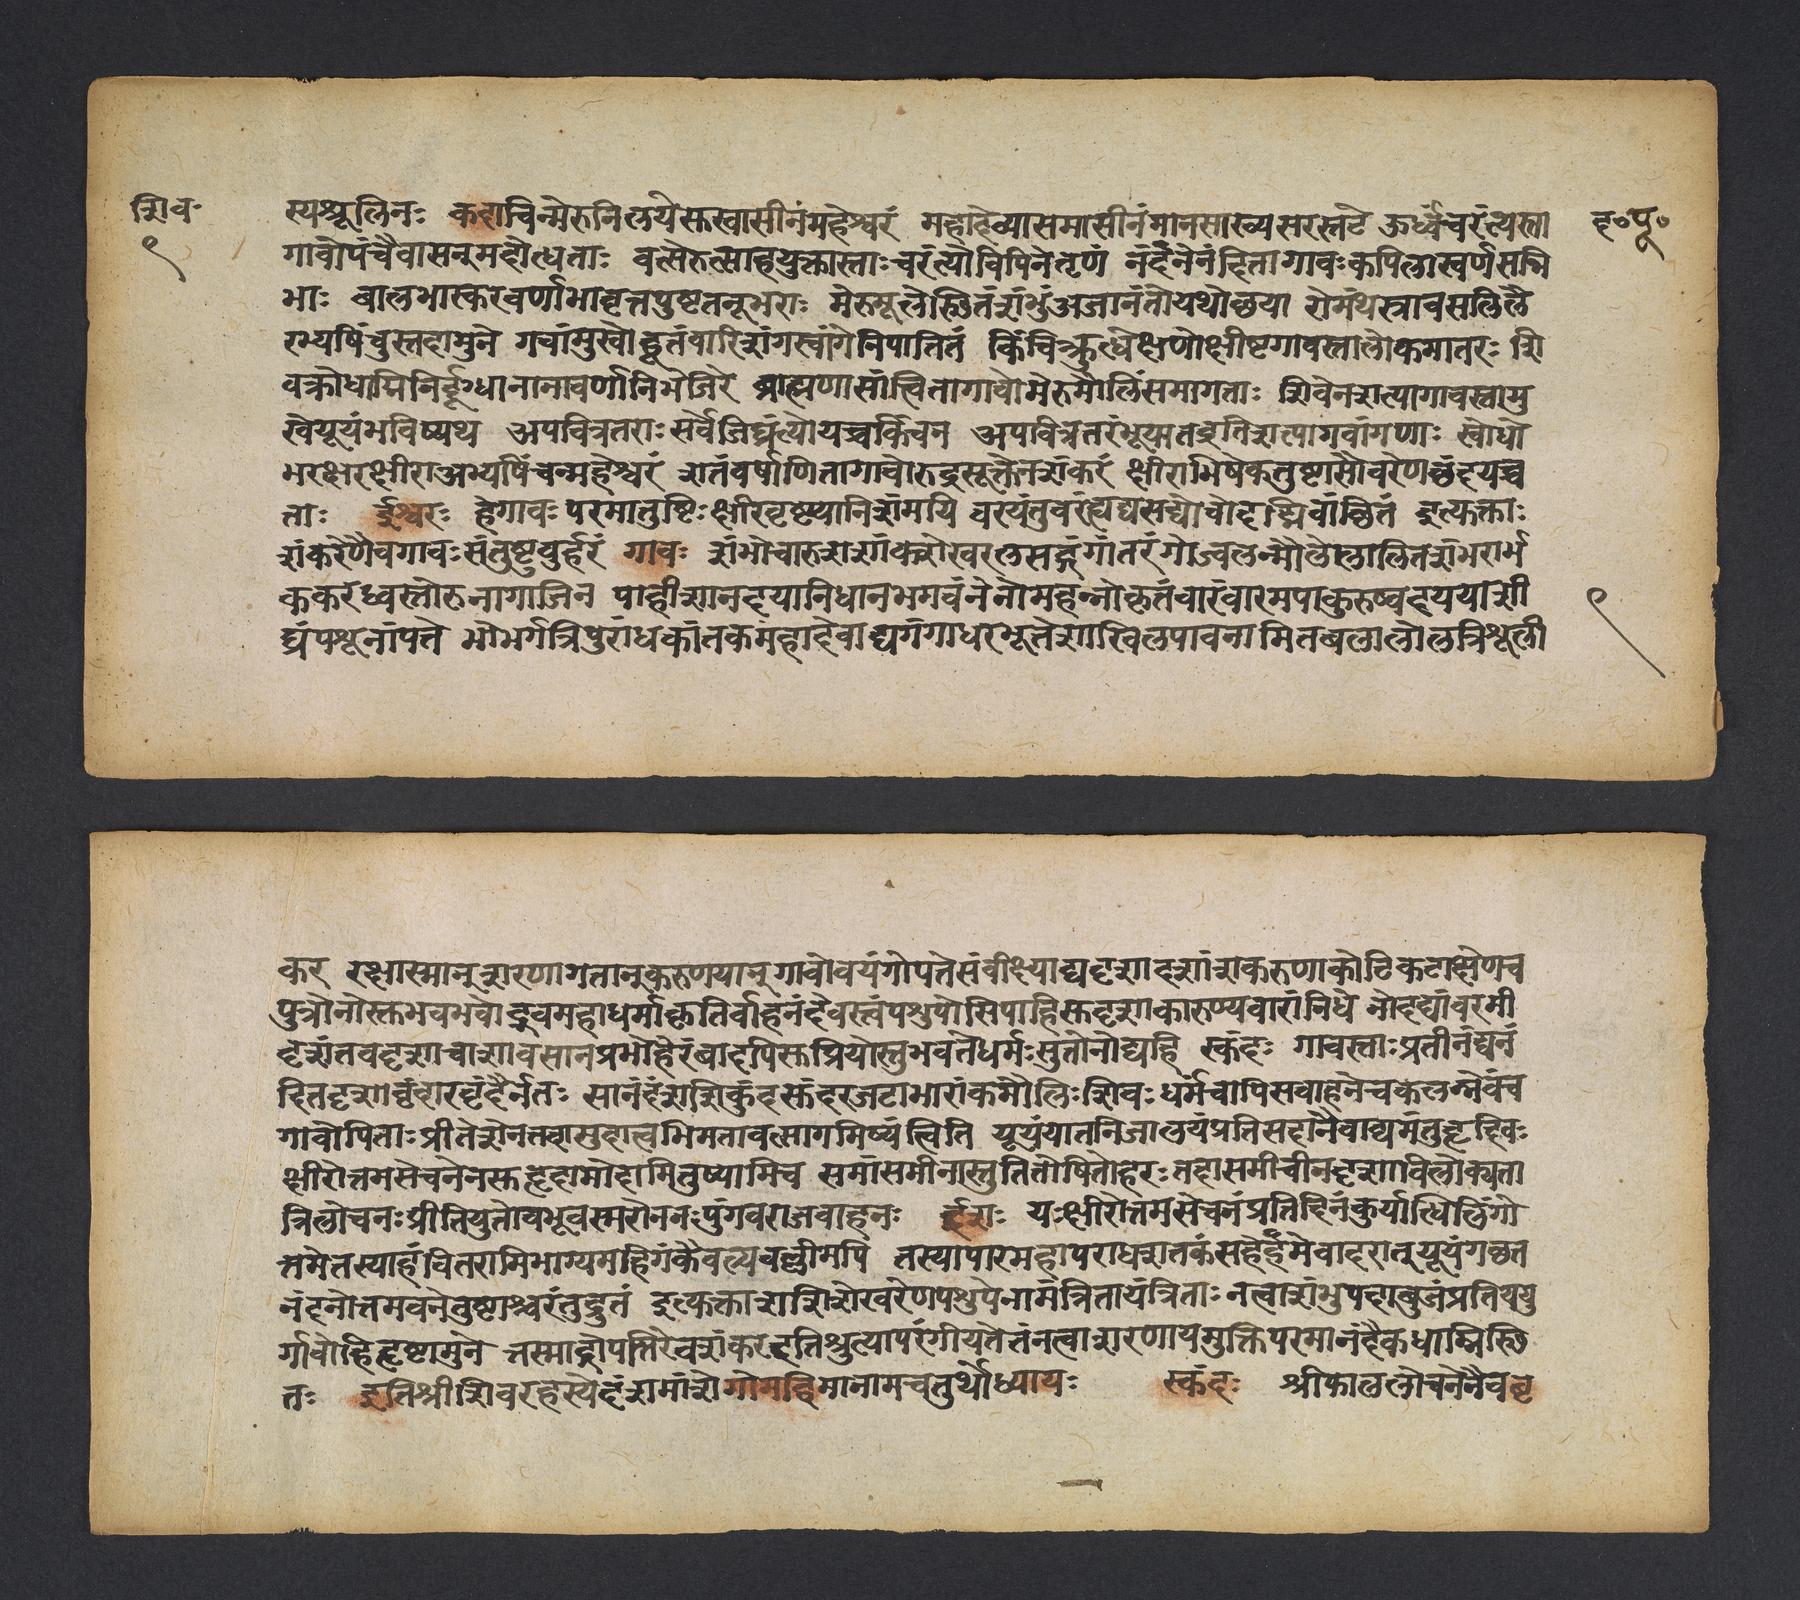 शिव॰ स्यशूलिनः कदाचिन्मेरुनिलयेसुखासीनंमहेश्वरं महादेव्यासमासीनंमानसाख्यसरस्तटे ऊर्ध्वंचरंत्यस्ता द॰पू॰
९ गावोपंचैवासन्महोत्धताः वत्सेरुत्साहयुक्तास्ताःचरंत्योविपिनेतृणं नंदनेनंदितागावःकपिलास्वर्णसन्नि
भाः बालभास्करवर्णाभावृत्तपुष्टतनूभराः मेरुमूलेस्थितंशंभुंअजानंतोयथेछया रोमंथस्त्रावसलिलै
रभ्यषिंचुस्तदामुने गवांमुखोद्भूतंवारिशंगस्वांगेनिपातितं किंचित्क्रुत्धेक्षणोक्षीष्टगावस्तालोकमातरः शि
वक्रोधाग्निनिर्दृग्धानानावर्णानिभेजिरे ब्राह्मणासांत्वितागावोमेरुमौलिंसमागताः शिवेनशप्तागावस्तामु
खेयूयंभविष्यथ अपवित्रतराः सर्वेजिघ्रंत्योयच्चकिंचन अपवित्रतरंभूयातइतिशप्तागवांगणाः स्वोधो
भरक्षरक्षीराअभ्यषिंचन्महेश्वरं शतंवर्षाणितागावोरुद्रसूक्तेनशंकरं क्षीराभिषेकतुष्टासौवरेणछंदयच्च
ताः ईश्वरः हेगावःपरमातुष्टिःक्षीरवृष्ट्यानिशंमयि वरयंतुवरंह्यद्यसद्योवोदद्मिवांछितं इत्युक्ताः
शंकरेणैवगावःसंतुष्टुवुर्हरं गावः शंभोचारुशशांकशेखरलसद्गंगांतरंगोज्वलन्मौलेलालितशंभरार्भ
ककरध्वस्तोरुनागाजिन पाहीशानदयानिधानभगवंनेनोमहन्नोछतंवारंवारमपाकुरुष्वदययाशी
घ्रंपशूनांपते भोभर्गत्रिपुरांधकांतकमहादेवाद्यगंगाधरभूतेशाखिलपावनामितबलालोलत्रिशूली ९
कर रक्षास्मान्शरणागतान्करुणयान्गावोवयंगोपतेसंवीक्ष्याद्यदृशादशांशकरुणाकोटिकटाक्षेणच
पुत्रोनोस्तभवभवोद्भवमहाधर्माकृतिर्वाहनंदेवस्त्वंपशुपोसिपाहिस्तदृशाकारुण्यवारांनिधे नोदद्यांवरमी
दृशंतवदृशाचाशावसानप्रभोहेरंबादपिस्तप्रियोस्तुभवतेधर्मःसुतोनोद्यहि स्कंदः गावस्ताःप्रतीनंद्यनं
दितदृशावृंदारवृंदैर्नतः सानंदंशशिकुंदस्तंदरजटाभारांकमौलिःशिवः धर्मंचापिसवाहनेचकलयन्नेवंच
गावोपिताःप्रीतेशेनतस्थासुदात्वभिमतावत्सागमिष्यंत्विति यूयंयातनिजालयंप्रतिसदानैवाद्यमंतुहृदिवः
क्षीरोत्तमसेचनेनस्तहृदामोदामितुष्यामिच समांसमीनास्तुतितोषितोहरःतदासमीचीनदृशाविलोक्यता
त्रिलोचनःप्रीतियुतोबभूवस्मरोननःपुंगवराजवाहनः ईशः यःक्षीरोत्तमसेचनंप्रतिदिनंकुर्यात्धिलिंगो
त्तमेतस्याहंवितरामिभाग्यमहिगंकैवल्यवल्लीमपि तस्यापारमहापराधशतकंसहेहमेवादरात्यूयंगछत
नंदनोत्तमवनेतुष्टाश्चरंतुद्रुतं इत्युक्ताशशिशेखरेणपशुपेनामंत्रितायंत्रिताः नत्वाशंभुपदांबुजंप्रतिययु
र्गावोहिहृष्टामुने तस्माद्गोपतिरेवशंकरइतिश्रुत्यापरंगीयतेतंनत्वाशरणायमुक्तिपरमानंदैकधाम्निस्थि
तः इतिश्रीशिवरहस्येदशमांशेगोमहिमानामचतुर्थोध्यायः स्कंदः श्रीफाललोचनेनैवदृ